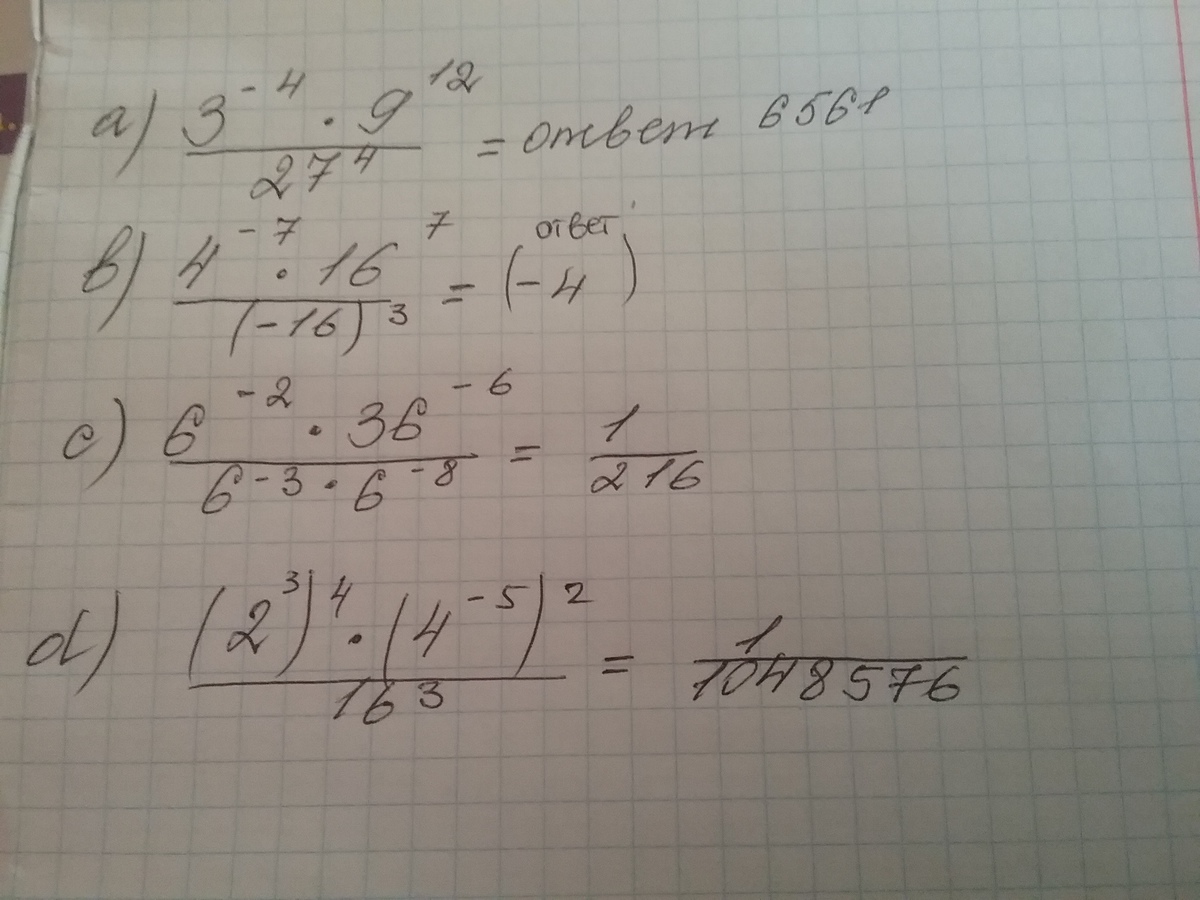 a) 3⁻⁴ · 9¹² / 27⁴ = ответ 6561
b) 4⁻⁷ · 16⁷ / (-16)³ = ответ (-4)
c) 6⁻² · 36⁻⁶ / 6⁻³ · 6⁻⁸ = 1/216
d) (2³)⁴ · (4⁻⁵)² / 16³ = 1/1048576